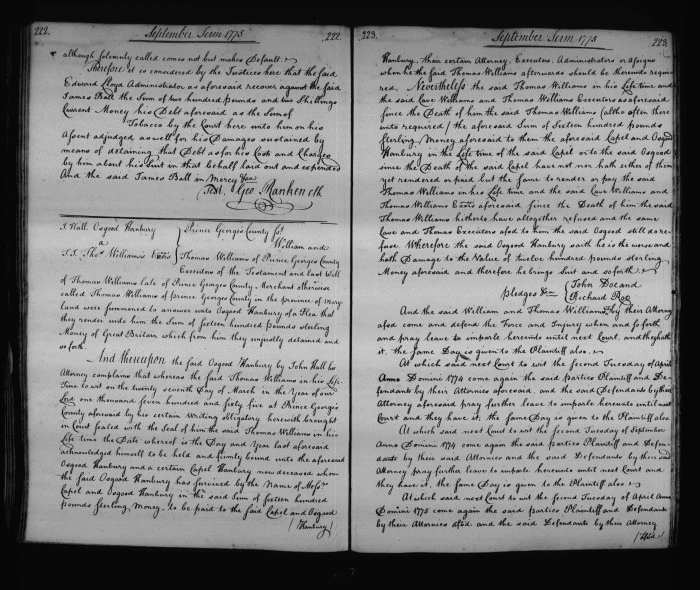 222. September Term 1775 222.
although solemnly called comes not but makes Default.
Therefore it is considered by the Justices here that the said
Edward Lloyd Administrator as aforesaid recover against the said
James Ball the Sum of two hundred pounds and two Shillings
Current Money his Debt aforesaid as the Sum of
Tobacco by the Court here unto him on his
Assent adjudged, as well for his Damages sustained by
means of detaining that Debt as for his Costs and Charges
by him about his Suit in that behalf laid out and expended
And the said James Ball in Mercy &ca
Test. Geo. Manken Clk
J. Hall. Osgood Hanbury
a
J.J. Thos. Williams's Exrs
Prince Georges County Sst.
William and
Thomas Williams of Prince Georges County
Executors of the Testament and last Will
of Thomas Williams late of Prince Georges County Merchant otherwise
called Thomas Williams of prince Georges County in the province of Mary-
land were summoned to answer unto Osgood Hanbury of a Plea that
they render unto him the Sum of sixteen hundred pounds sterling
Money of Great Britain which from him they unjustly detained and
so forth.
And thereupon the said Osgood Hanbury by John Hall his
Attorney complains that whereas the said Thomas Williams in his Life
Time to wit on the twenty seventh Day of March in the Year of our
Lord one thousand seven hundred and forty five at Prince Georges
County aforesaid by his certain Writing obligatory herewith brought
in Court sealed with the Seal of him the said Thomas Williams in his
Life time the Date whereof is the Day and Year last aforesaid
acknowledged himself to be held and firmly bound unto the aforesaid
Osgood Hanbury and a certain Capel Hanbury now deceased whom
the said Osgood Hanbury has survived by the Name of Messrs
Capel and Osgood Hanbury in the said Sum of sixteen hundred
pounds sterling Money, to be paid to the said Capel and Osgood
(Hanbury)
223. September Term 1775 223.
Hanbury. Their certain Attorney, Executors, Administrators or Assigns
when he the said Thomas Williams afterwards should be thereunto requi-
red. Nevertheless the said Thomas Williams in his Life time and
the said Cave Williams and Thomas Williams Executors as aforesaid
since the Death of him the said Thomas Williams (altho often there
unto required) the aforesaid Sum of Sixteen hundred pounds
sterling Money aforesaid to them the aforesaid Capel and Osgood
Hanbury in the Life time of the said Capel or to the said Osgood
since the Death of the said Capel have not nor hath either of them
yet rendered or paid but the same to render or pay the said
Thomas Williams in his Life time and the said Cave Williams and
Thomas Williams Exrs aforesaid since the Death of him the said
Thomas Williams hitherto have altogether refused and the same
Cave and Thomas Executors afsd to him the said Osgood still do re-
fuse Wherefore the said Osgood Hanbury saith he is the worse and
hath Damage to the Value of twelve hundred pounds sterling
Money aforesaid and therefore he brings suit and so forth.
pledges &ca
John Doe and
Richard Roe
And the said William and Thomas Williams by their Attorney
afsd come and defend the Force and Injury when and so forth
and pray leave to imparle hereunto until next Court and they hath
it. the same Day is given to the Plaintiff also.
At which said next Court to wit the second Tuesday of April
Anno Domini 1774 come again the said parties Plaintiff and De-
fendants by their Attornies aforesaid, and the said Defendants by their
Attorney aforesaid pray further leave to imparle hereunto until next
Court and they have it, the same Day is given to the Plaintiff also
At which said next Court to wit the second Tuesday of September
Anno Domini 1774 come again the said parties Plaintiff and Defen-
dants by their said Attornies and the said Defendants by their said
Attorney pray further leave to imparle hereunto until next Court and
they have it, the same Day is given to the Plaintiff also.
At which said next Court to wit the second Tuesday of April Anno
Domini 1775 come again the said parties Plaintiff and Defendants
by their Attornies afsd and the said Defendants by their Attorney